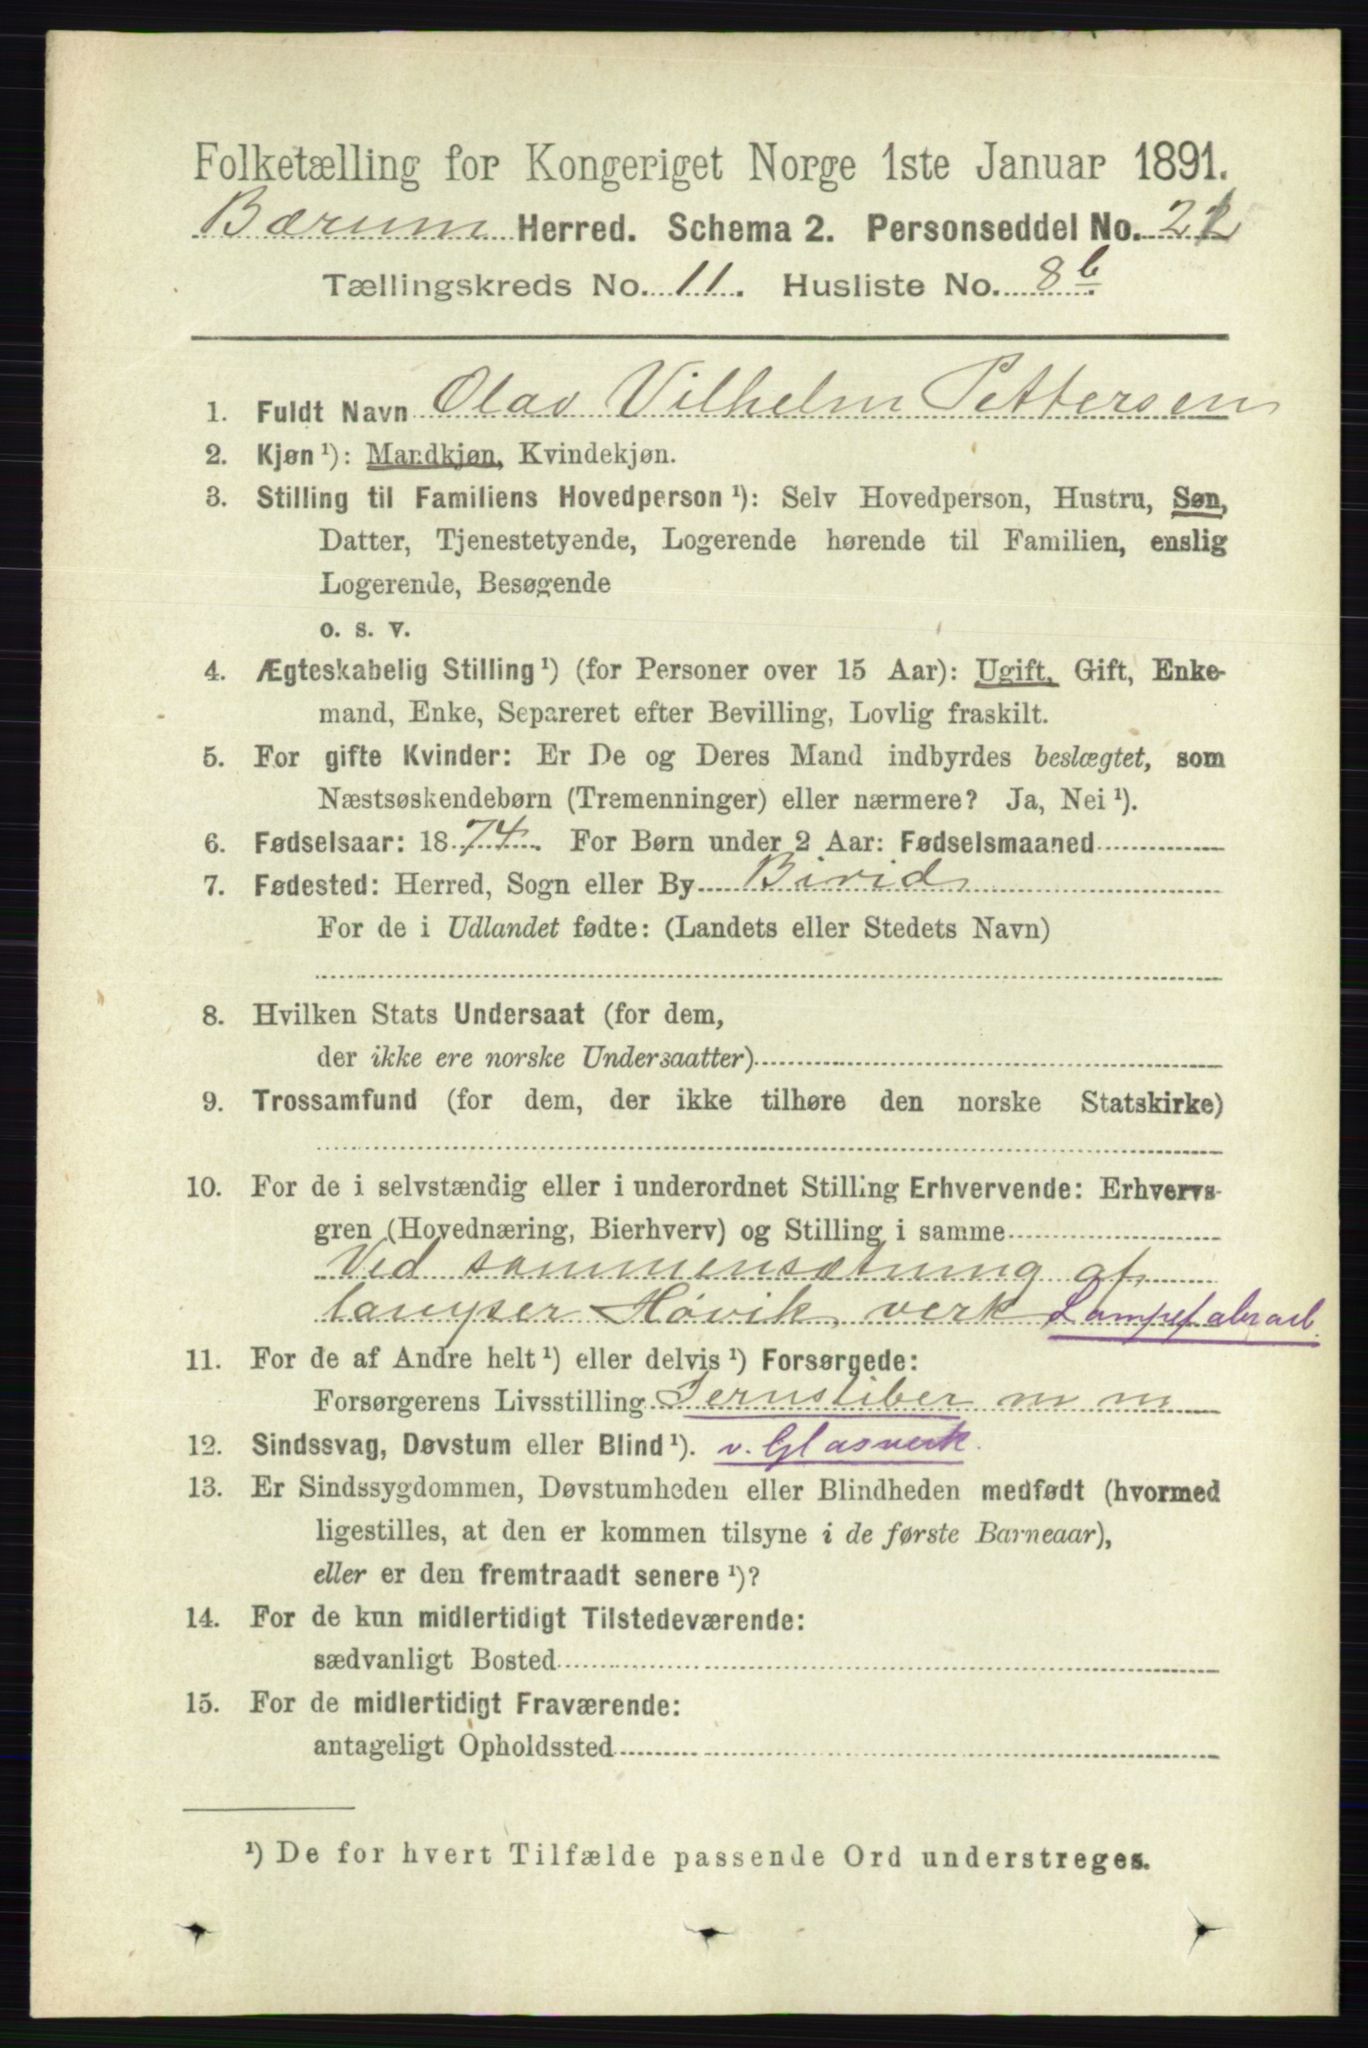 Folketælling for Kongeriget Norge 1ste Januar 1891.
Bærum Herred. Schema 2. Personseddel No. 22
Tællingskreds No. 11. Husliste No. 8b
1. Fuldt Navn Olav Vilhelm Pettersen
2. Kjøn¹): Mandkjøn, Kvindekjøn.
3. Stilling til Familiens Hovedperson¹): Selv Hovedperson, Hustru, Søn,
Datter, Tjenestetyende, Logerende hørende til Familien, enslig
Logerende, Besøgende
o. s. v.
4. Ægteskabelig Stilling¹) (for Personer over 15 Aar): Ugift, Gift, Enke-
mand, Enke, Separeret efter Bevilling, Lovlig fraskilt.
5. For gifte Kvinder: Er De og Deres Mand indbyrdes beslægtet, som
Næstsøskendebørn (Tremenninger) eller nærmere? Ja, Nei¹).
6. Fødselsaar: 1874. For Børn under 2 Aar: Fødselsmaaned
7. Fødested: Herred, Sogn eller By Birid
For de i Udlandet fødte: (Landets eller Stedets Navn)
8. Hvilken Stats Undersaat (for dem,
der ikke ere norske Undersaatter)
9. Trossamfund (for dem, der ikke tilhøre den norske Statskirke)
10. For de i selvstændig eller i underordnet Stilling Erhvervende: Erhvervs-
gren (Hovednæring, Bierhverv) og Stilling i samme
Ved sammensætning af
lamper Høvik verk Lampefabrarb.
11. For de af Andre helt¹) eller delvis¹) Forsørgede:
Forsørgerens Livsstilling Jernstøber m m
12. Sindssvag, Døvstum eller Blind¹). v. Glasverk.
13. Er Sindssygdommen, Døvstumheden eller Blindheden medfødt (hvormed
ligestilles, at den er kommen tilsyne i de første Barneaar),
eller er den fremtraadt senere¹)?
14. For de kun midlertidigt Tilstedeværende:
sædvanligt Bosted
15. For de midlertidigt Fraværende:
antageligt Opholdssted
¹) De for hvert Tilfælde passende Ord understreges.